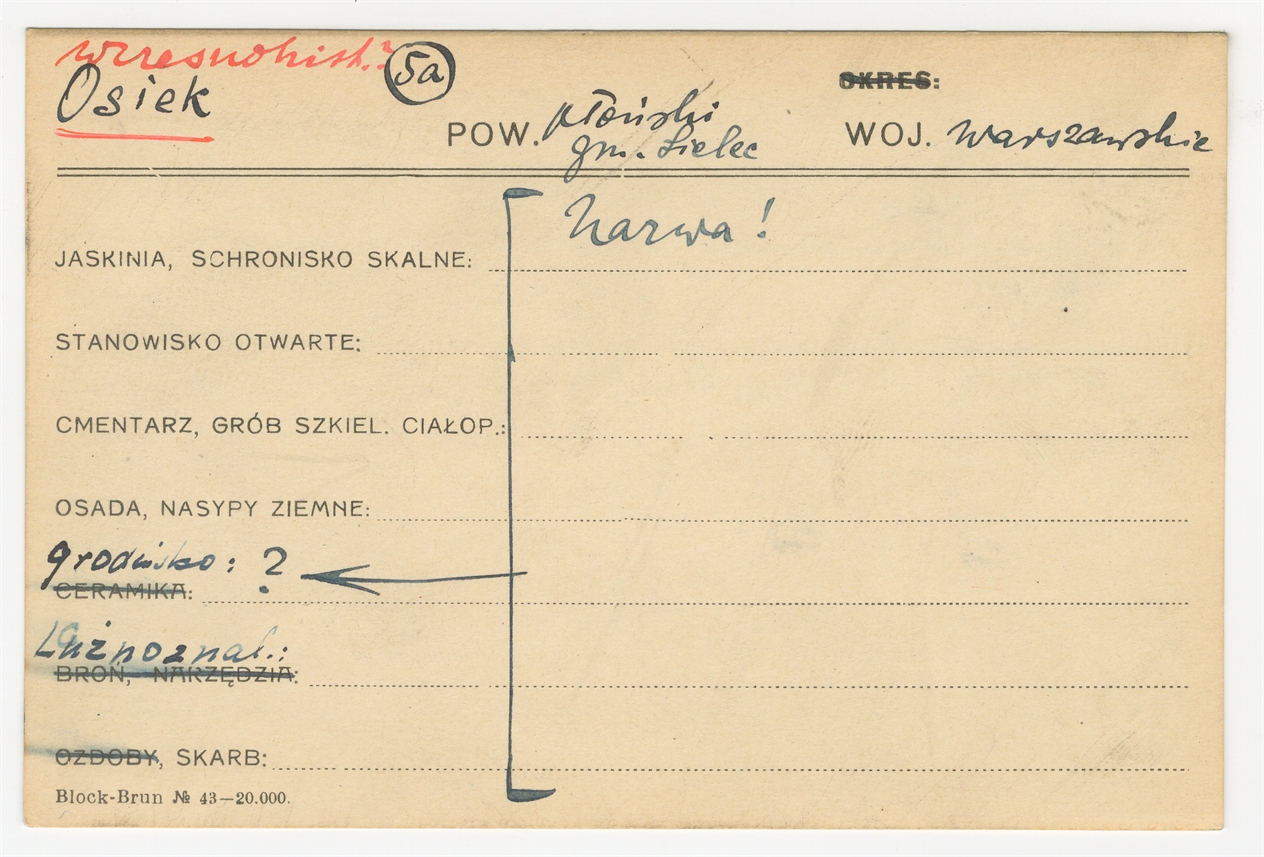 wczesnohist.?
Osiek
5a
OKRES:
POW. płoński
gm. Sielec
WOJ. Warszawskie
Narwa!
JASKINIA, SCHRONISKO SKALNE:
STANOWISKO OTWARTE:
CMENTARZ, GRÓB SZKIEL. CIAŁOP.:
OSADA, NASYPY ZIEMNE:
grodzisko: ?
CERAMIKA:
Luź no znal.:
BROŃ, NARZĘDZIA:
OZDOBY, SKARB:
Block-Brun № 43—20.000.